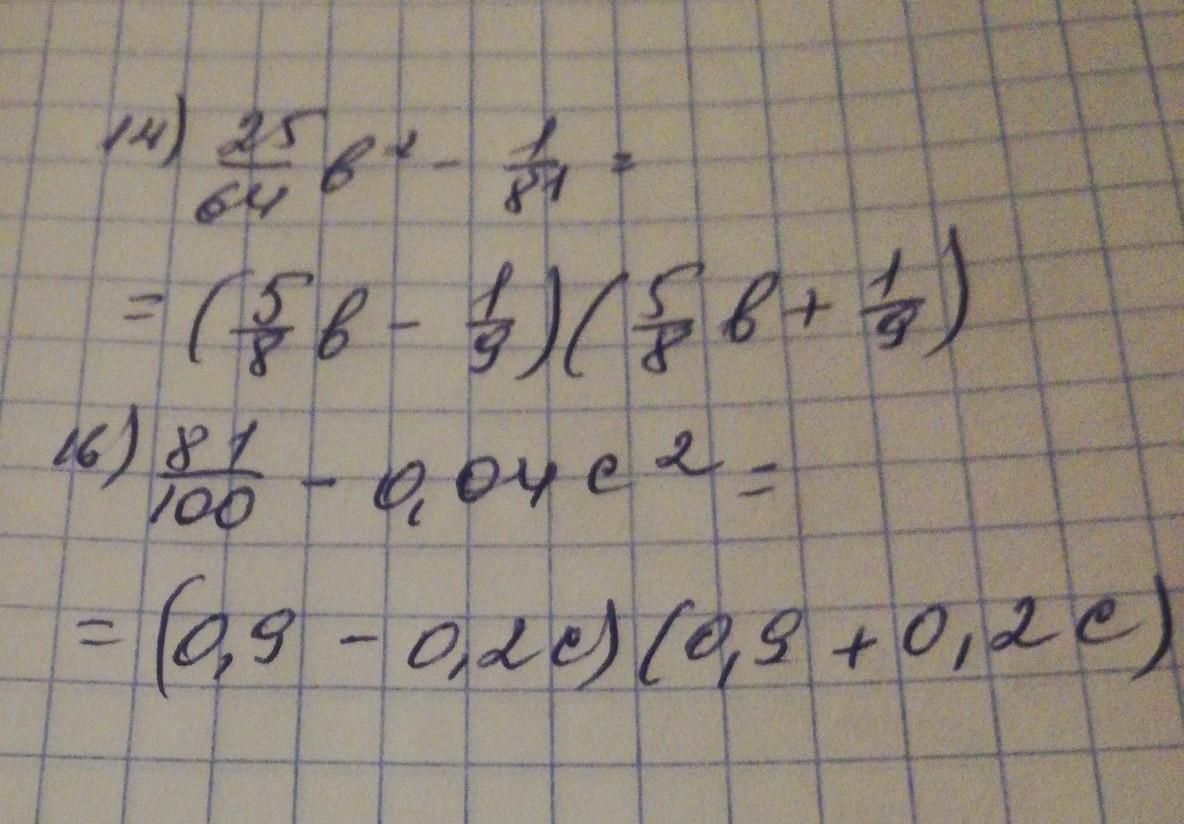 14) 25/64 в² - 1/81 =
= (5/8 в - 1/9)(5/8 в + 1/9)
16) 81/100 - 0,04 с² =
= (0,9 - 0,2с)(0,9 + 0,2с)